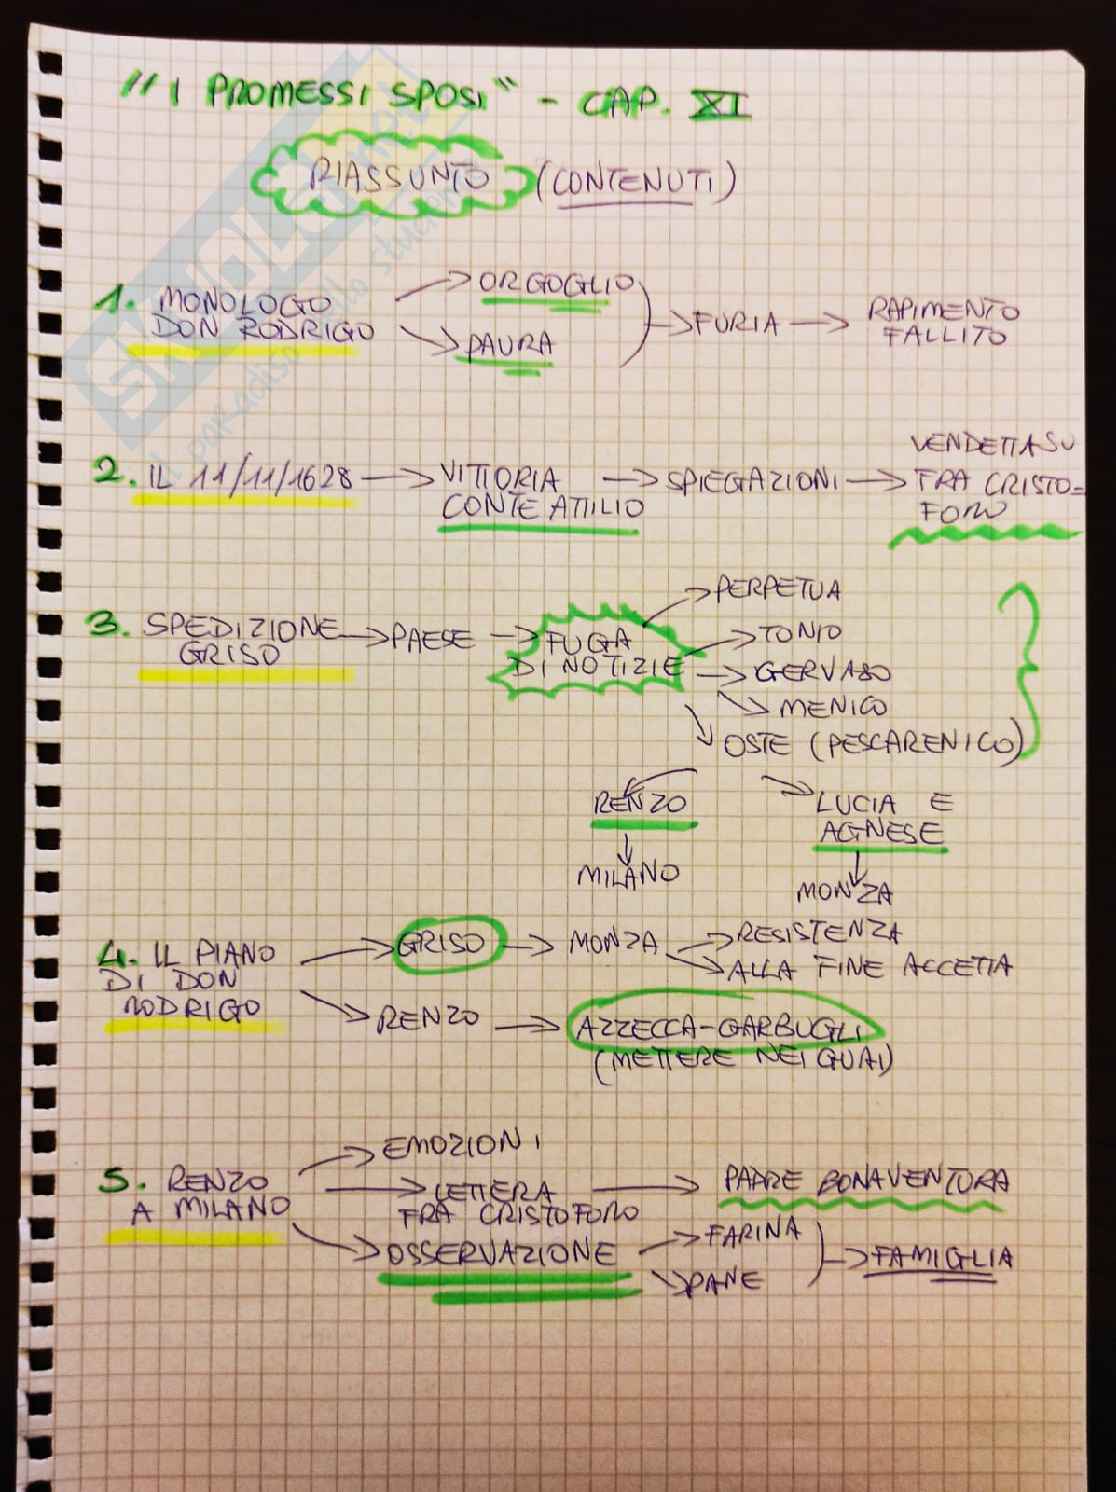 "I PROMESSI SPOSI" - CAP. XI
RIASSUNTO (CONTENUTI)
1. MONOLOGO
DON RODRIGO
ORGOGLIO
PAURA
FURIA
RAPIMENTO
FALLITO
2. IL 11/11/1628
VITTORIA
CONTE ATTILIO
SPIEGAZIONI
VENDETTA SU
FRA CRISTO=
FORO
3. SPEDIZIONE
GRISO
PAESE
FUGA
DI NOTIZIE
PERPETUA
TONIO
GERVASO
MENICO
OSTE (PESCARENICO)
RENZO
MILANO
LUCIA E
AGNESE
MONZA
4. IL PIANO
DI DON
RODRIGO
GRISO
MONZA
RESISTENZA
ALLA FINE ACCETTA
RENZO
AZZECCA-GARBUGLI
(METTERE NEI GUAI)
5. RENZO
A MILANO
EMOZIONI
LETTERA
FRA CRISTOFORO
PADRE BONAVENTURA
OSSERVAZIONE
FARINA
PANE
FAMIGLIA